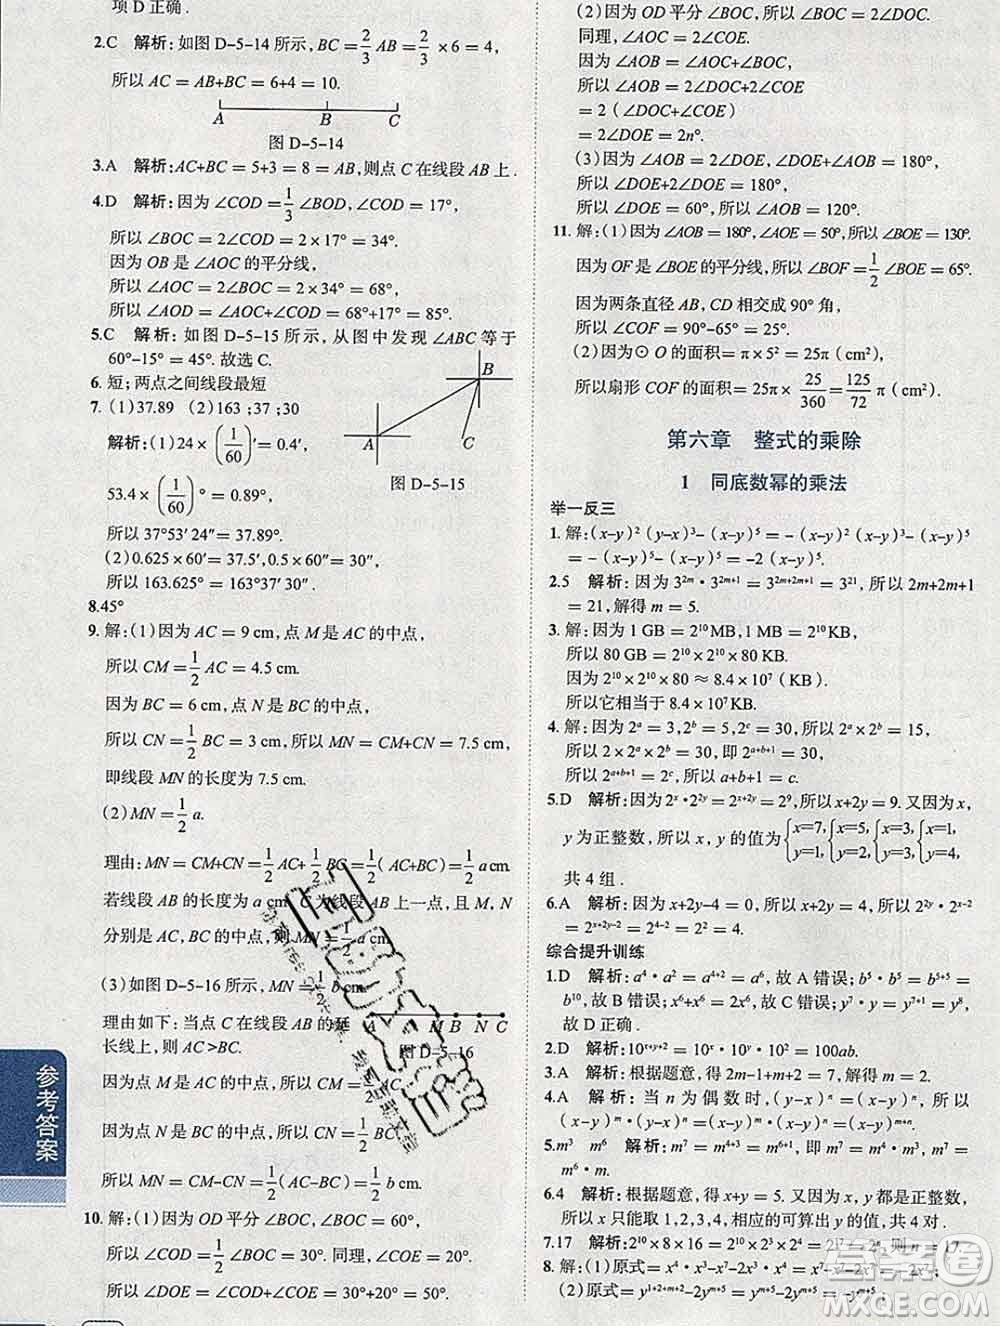 项 D 正确.
2.C 解析:如图 D-5-14 所示, BC = 2/3 AB = 2/3 × 6 = 4,
所以 AC = AB+BC = 6+4 = 10.
A B C
图 D-5-14
3.A 解析:AC+BC = 5+3 = 8 = AB,则点 C 在线段 AB 上.
4.D 解析:因为 ∠COD = 1/3 ∠BOD, ∠COD = 17°,
所以 ∠BOC = 2∠COD = 2×17° = 34°.
因为 OB 是 ∠AOC 的平分线,
所以 ∠AOC = 2∠BOC = 2×34° = 68°,
所以 ∠AOD = ∠AOC+∠COD = 68°+17° = 85°.
5.C 解析:如图 D-5-15 所示,从图中发现 ∠ABC 等于
60°-15° = 45°. 故选 C.
6. 短;两点之间线段最短
7. (1)37.89 (2)163 ;37;30
解析:(1)24×(1/60)′ = 0.4′,
53.4×(1/60)° = 0.89°,
所以 37°53′24″ = 37.89°.
(2)0.625×60′ = 37.5′,0.5×60″ = 30″,
所以 163.625° = 163°37′30″.
B
A C
图 D-5-15
8.45°
9. 解:(1)因为 AC = 9 cm,点 M 是 AC 的中点,
所以 CM = 1/2 AC = 4.5 cm.
因为 BC = 6 cm,点 N 是 BC 的中点,
所以 CN = 1/2 BC = 3 cm,所以 MN = CM+CN = 7.5 cm,
即线段 MN 的长度为 7.5 cm.
(2)MN = 1/2 a.
理由:MN = CM+CN = 1/2 AC+ 1/2 BC = 1/2 (AC+BC) = 1/2 a cm.
若线段 AB 的长度为 a cm, C 为线段 AB 上一点,且 M, N
分别是 AC, BC 的中点,则 MN = 1/2 a cm.
(3)如图 D-5-16 所示,
理由如下:当点 C 在线段 AB 的延
长线上,则 AC >BC.
A M B N C
图 D-5-16
因为点 M 是 AC 的中点,所以 CM = 1/2 AC.
因为点 N 是 BC 的中点,所以 CN = 1/2 BC,
所以 MN = CM-CN = 1/2 (AC-BC) = 1/2 b cm.
10. 解:(1)因为 OD 平分 ∠BOC, ∠BOC = 60°,
所以 ∠COD = 1/2 ∠BOC = 30°. 同理, ∠COE = 20°.
所以 ∠DOE = ∠DOC+∠COE = 30°+20° = 50°.
(2)因为 OD 平分 ∠BOC,所以 ∠BOC = 2∠DOC.
同理, ∠AOC = 2∠COE.
因为 ∠AOB = ∠AOC+∠BOC,
所以 ∠AOB = 2∠DOC+2∠COE
= 2 (∠DOC+∠COE)
= 2∠DOE = 2n°.
(3)因为 ∠AOB+∠DOE = 180°,
所以 2∠DOE+∠DOE = 180°,
所以 ∠DOE = 60°,所以 ∠AOB = 120°.
11. 解:(1)因为 ∠AOB = 180°, ∠AOE = 50°,所以 ∠BOE = 130°.
因为 OF 是 ∠BOE 的平分线,所以 ∠BOF = 1/2 ∠BOE = 65°.
因为两条直径 AB, CD 相交成 90° 角,
所以 ∠COF = 90°-65° = 25°.
(2)因为⊙O 的面积 = π×5² = 25π (cm²),
所以扇形 COF 的面积 = 25π× 25/360 = 125/72 π (cm²).
第六章 整式的乘除
1 同底数幂的乘法
举一反三
1. 解:(x-y)² (y-x)³-(x-y)⁵ = -(x-y)² (x-y)³-(x-y)⁵
= -(x-y)⁵-(x-y)⁵ = -2 (x-y)⁵.
2.5 解析:因为 3²ᵐ·3²ᵐ⁺¹ = 3²ᵐ⁺²ᵐ⁺¹ = 3²¹,所以 2m+2m+1
= 21,解得 m = 5.
3. 解:因为 1 GB = 2¹⁰ MB, 1 MB = 2¹⁰ KB,
所以 80 GB = 2¹⁰×2¹⁰×80 (KB).
因为 2¹⁰×2¹⁰×80 ≈ 8.4×10⁷ (KB).
所以它相当于 8.4×10⁷KB.
4. 解:因为 2ᵃ = 3,2ᵇ = 5,2ᶜ = 30,所以 2ᵃ×2ᵇ = 15,
所以 2ᵃ×2ᵇ×2 = 30,即 2ᵃ⁺ᵇ⁺¹ = 30,
所以 2ᵃ⁺ᵇ⁺¹ = 2ᶜ,所以 a+b+1 = c.
5.D 解析:因为 2ˣ·2²ʸ = 2ˣ⁺²ʸ = 2⁹,所以 x+2y = 9. 因为 x,
y 为正整数,所以 x, y 的值为 {x=7, y=1, {x=5, y=2, {x=3, y=3, {x=1, y=4,
共 4 组.
6.A 解析:因为 x+2y-4 = 0,所以 x+2y = 4,所以 2²ʸ·2ˣ⁻²
= 2ˣ⁺²ʸ⁻² = 2⁴⁻² = 2² = 4.
综合提升训练
1.D 解析:a⁴·a⁴ = a⁴⁺⁴ = a⁸,故 A 错误;b⁵·b⁵ = b⁵⁺⁵ =
b¹⁰,故 B 错误;x⁶+x⁶ = 2x⁶,故 C 错误;y⁷·y = y⁷⁺¹ = y⁸,
故 D 正确.
2.D 解析:10ˣ⁺ʸ⁺² = 10ˣ·10ʸ·10² = 100ab.
3.A 解析:根据题意,得 2m-1+m = 5+2m,解得 m = 6.
4.A 解析:当 n 为偶数时,(y-x)ⁿ = (x-y)ⁿ,所以
(x-y)ᵐ·(y-x)ⁿ = (x-y)ᵐ·(x-y)ⁿ = (x-y)ᵐ⁺ⁿ.
5.m³ m⁶ 解析:m⁷ = m⁴⁺³ = m⁶⁺¹,所以 m⁷ = m⁴·m³ =
m⁶·m.
6.4 解析:根据题意,得 x+y = 5. 又因为 x, y 都是正整数,
所以 x 只能取 1,2,3,4,相应的可算出 y 的值,共 4 对.
7.17 解析:2¹⁰×8×16 = 2¹⁰×2³×2⁴ = 2¹⁷ = 2ⁿ,则 n = 17.
8. 解:(1)原式 = x⁴·x³-x⁵-2x⁷ = x⁷-x⁵-2x⁷ = -x⁷-x⁵.
(2)原式 = y¹⁺²⁺ᵐ⁺²-yᵐ⁺⁵ = yᵐ⁺⁵-yᵐ⁺⁵
参考答案
MXQE.COM